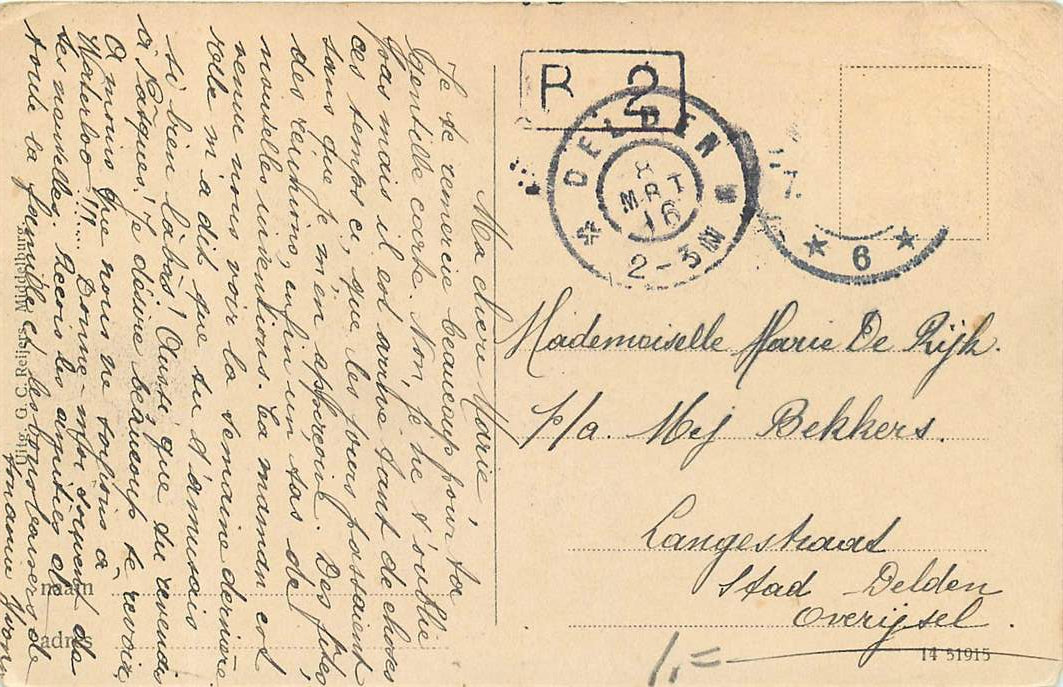 Ma chère Marie,
Je te remercie beaucoup pour ta
gentille carte. Non, je ne t'oublie
pas mais il est arrivé tant de choses
ces temps ci, que les jours passaient
sans que je m'en apperçoive. Des fêtes,
des réunions, enfin un tas de
nouvelles inventions. Ta maman est
venue nous voir la semaine dernière
elle m'a dit que tu t'amusais
si bien là bas! Aussi que tu reviendr
à Pâques! Je désire beaucoup te revoir
A moins que nous ne fassions à
Waterloo!!!.... Donne-moi souvent de
tes nouvelles. Recois les amitiés de
toute la famille et les bons baisers de
Yvonne
Uitg. G. C. Reijers, Middelburg
naam
adres
R 2
DELDEN
8
MRT
16
2-3N
6
Mademoiselle Marie De Rijk.
p/a. Mej Bekkers.
Langestraat
Stad Delden
Overijsel.
1,=
14 51915